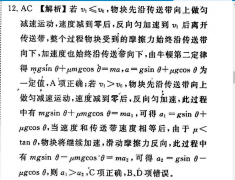 12. AC 【解析】若 v₂≤v₁,物块先沿传送带向上做匀
减速运动,速度减到零后,反向匀加速到 v₂ 后离开
传送带,整个过程物块受到的摩擦力始终沿传送带
向下,加速度也始终沿传送带向下,由牛顿第二定律
得 mgsin θ+μmgcos θ=ma,a=gsin θ+μgcos θ 为
一定值,A项正确;若 v₂>v₁,物块先沿传送带向上
做匀减速运动,速度减到零后,反向加速,此过程
中有 mgsin θ+μmgcos θ=ma₁,可得 a₁=gsin θ+
μgcos θ,当速度和传送带速度相等后,由于 μ<
tan θ,物块将继续加速,滑动摩擦力反向,此过程中
有 mgsin θ-μmgcos θ=ma₂,可得 a₂=gsin θ-
μgcos θ,则 a₁>a₂,C项正确,B、D项错误。